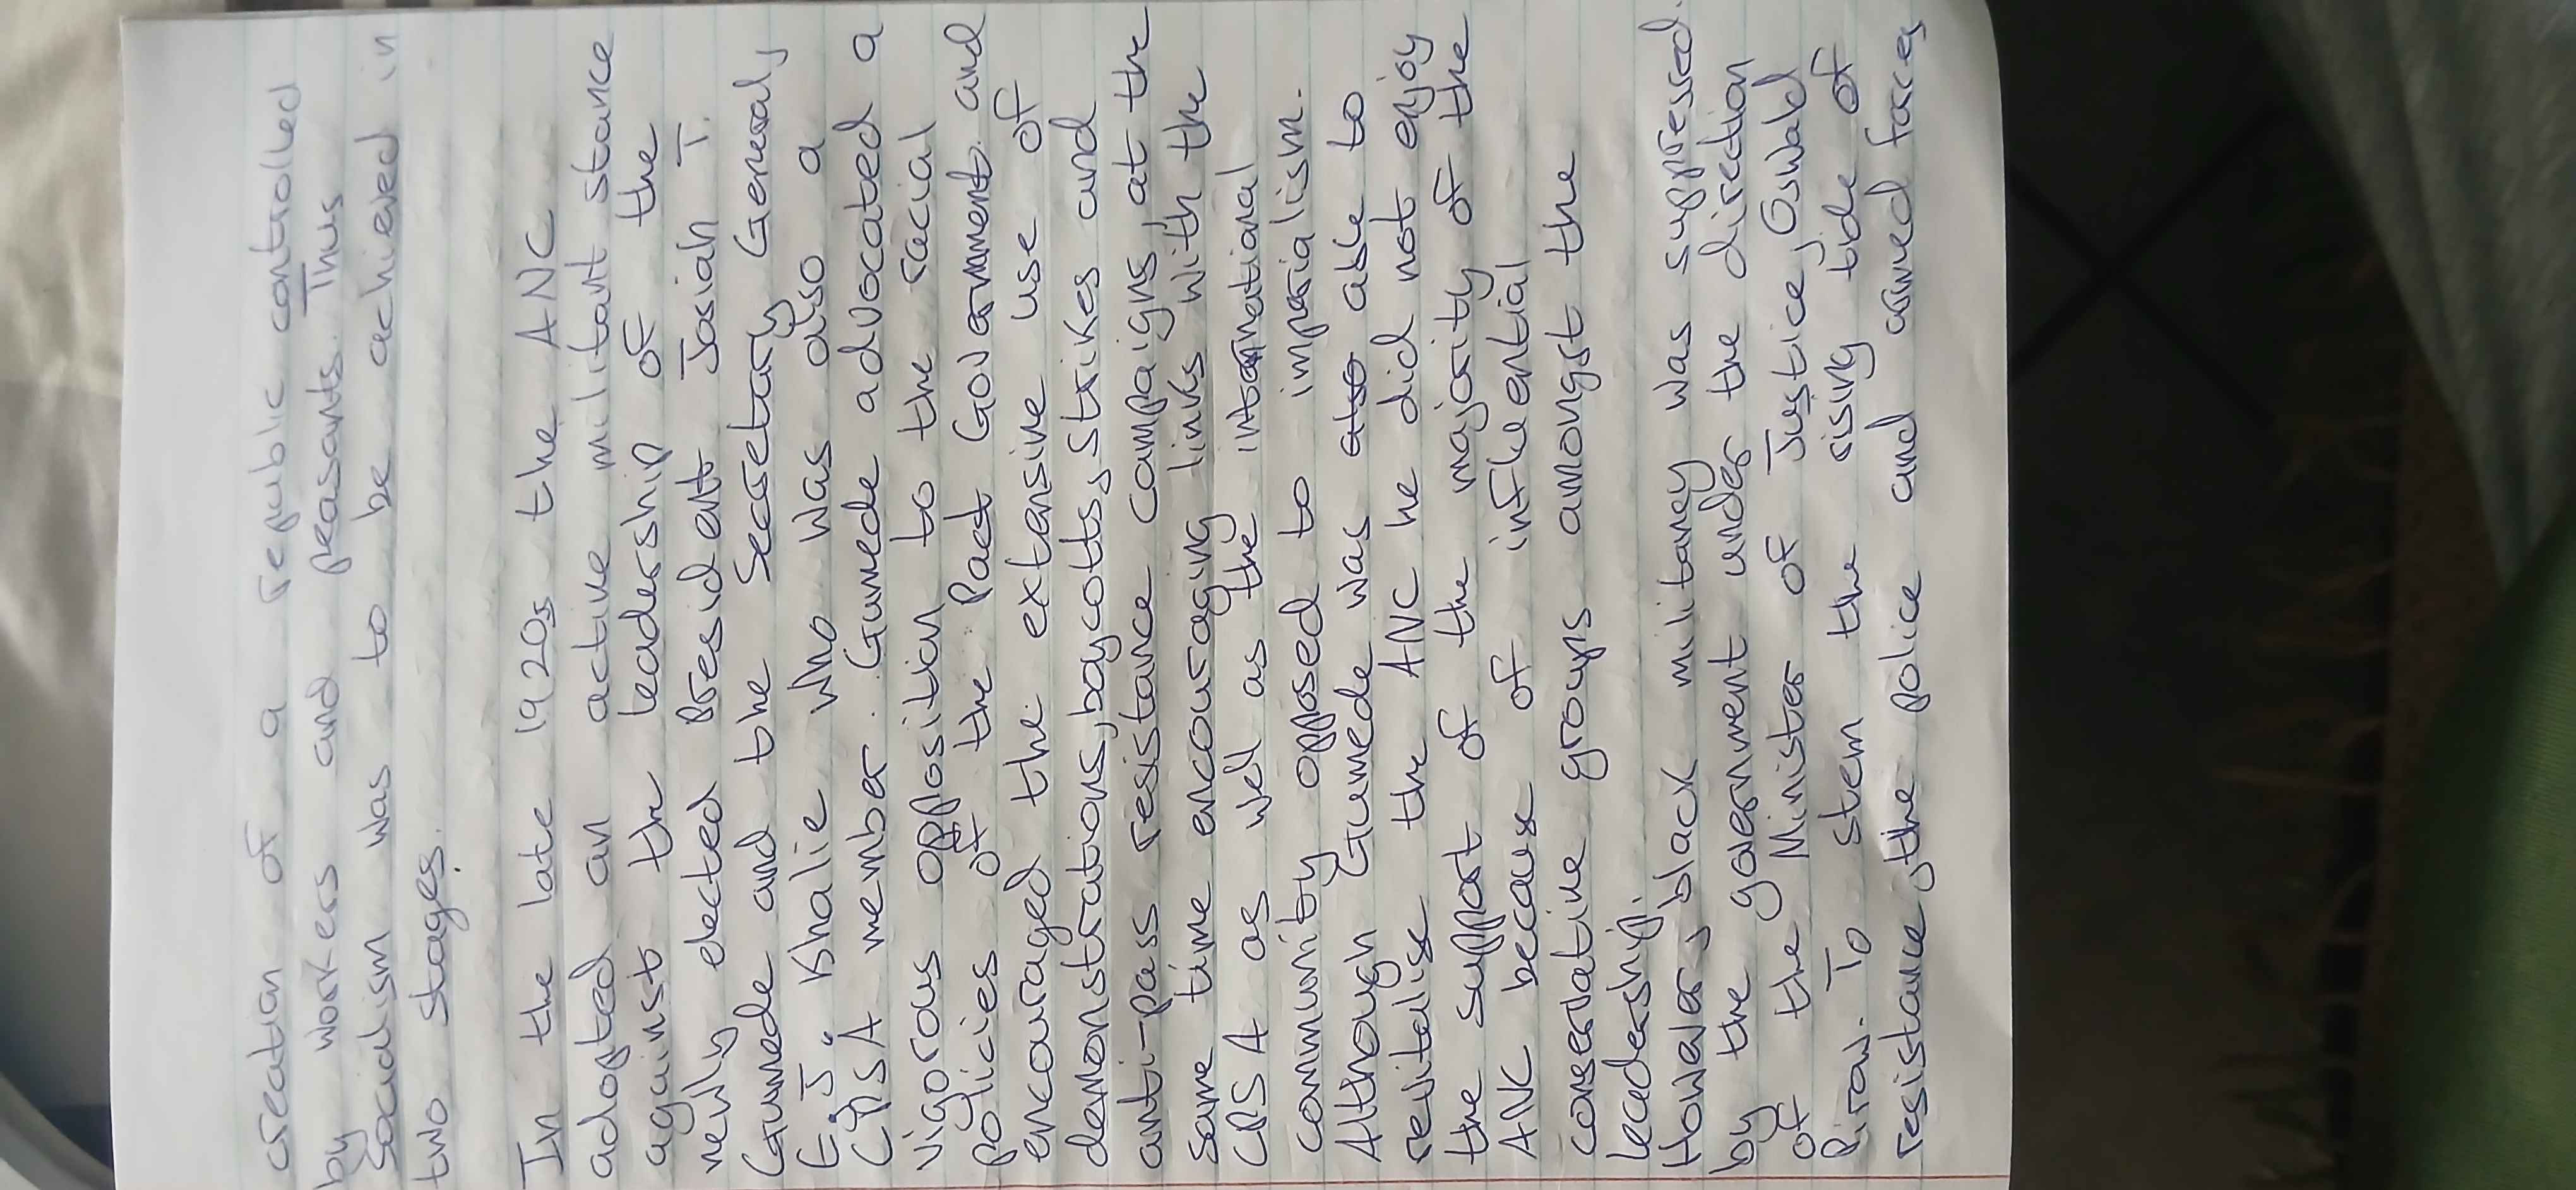 creation of a republic controlled
by workers and peasants. Thus
Socialism was to be achieved in
two stages.
In the late 1920s the ANC
adopted an active militant stance
against the leadership of the
newly elected President Josiah T.
Gumede and the Secretary General,
E.J. Khalie who was also a
CPSA member. Gumede advocated a
vigorous opposition to the racial
policies of the Pact Government and
encouraged the extensive use of
demonstrations, boycotts, strikes and
anti-pass resistance campaigns, at the
same time encouraging links with the
CPSA as well as the international
community opposed to imperialism.
Although Gumede was also able to
revitalise the ANC he did not enjoy
the support of the majority of the
ANC because of influential
conservative groups amongst the
leadership.
However, black militancy was suppressed
by the government under the direction
of the Minister of Justice, Oswald
Pirow. To stem the rising tide of
resistance, the police and armed forces